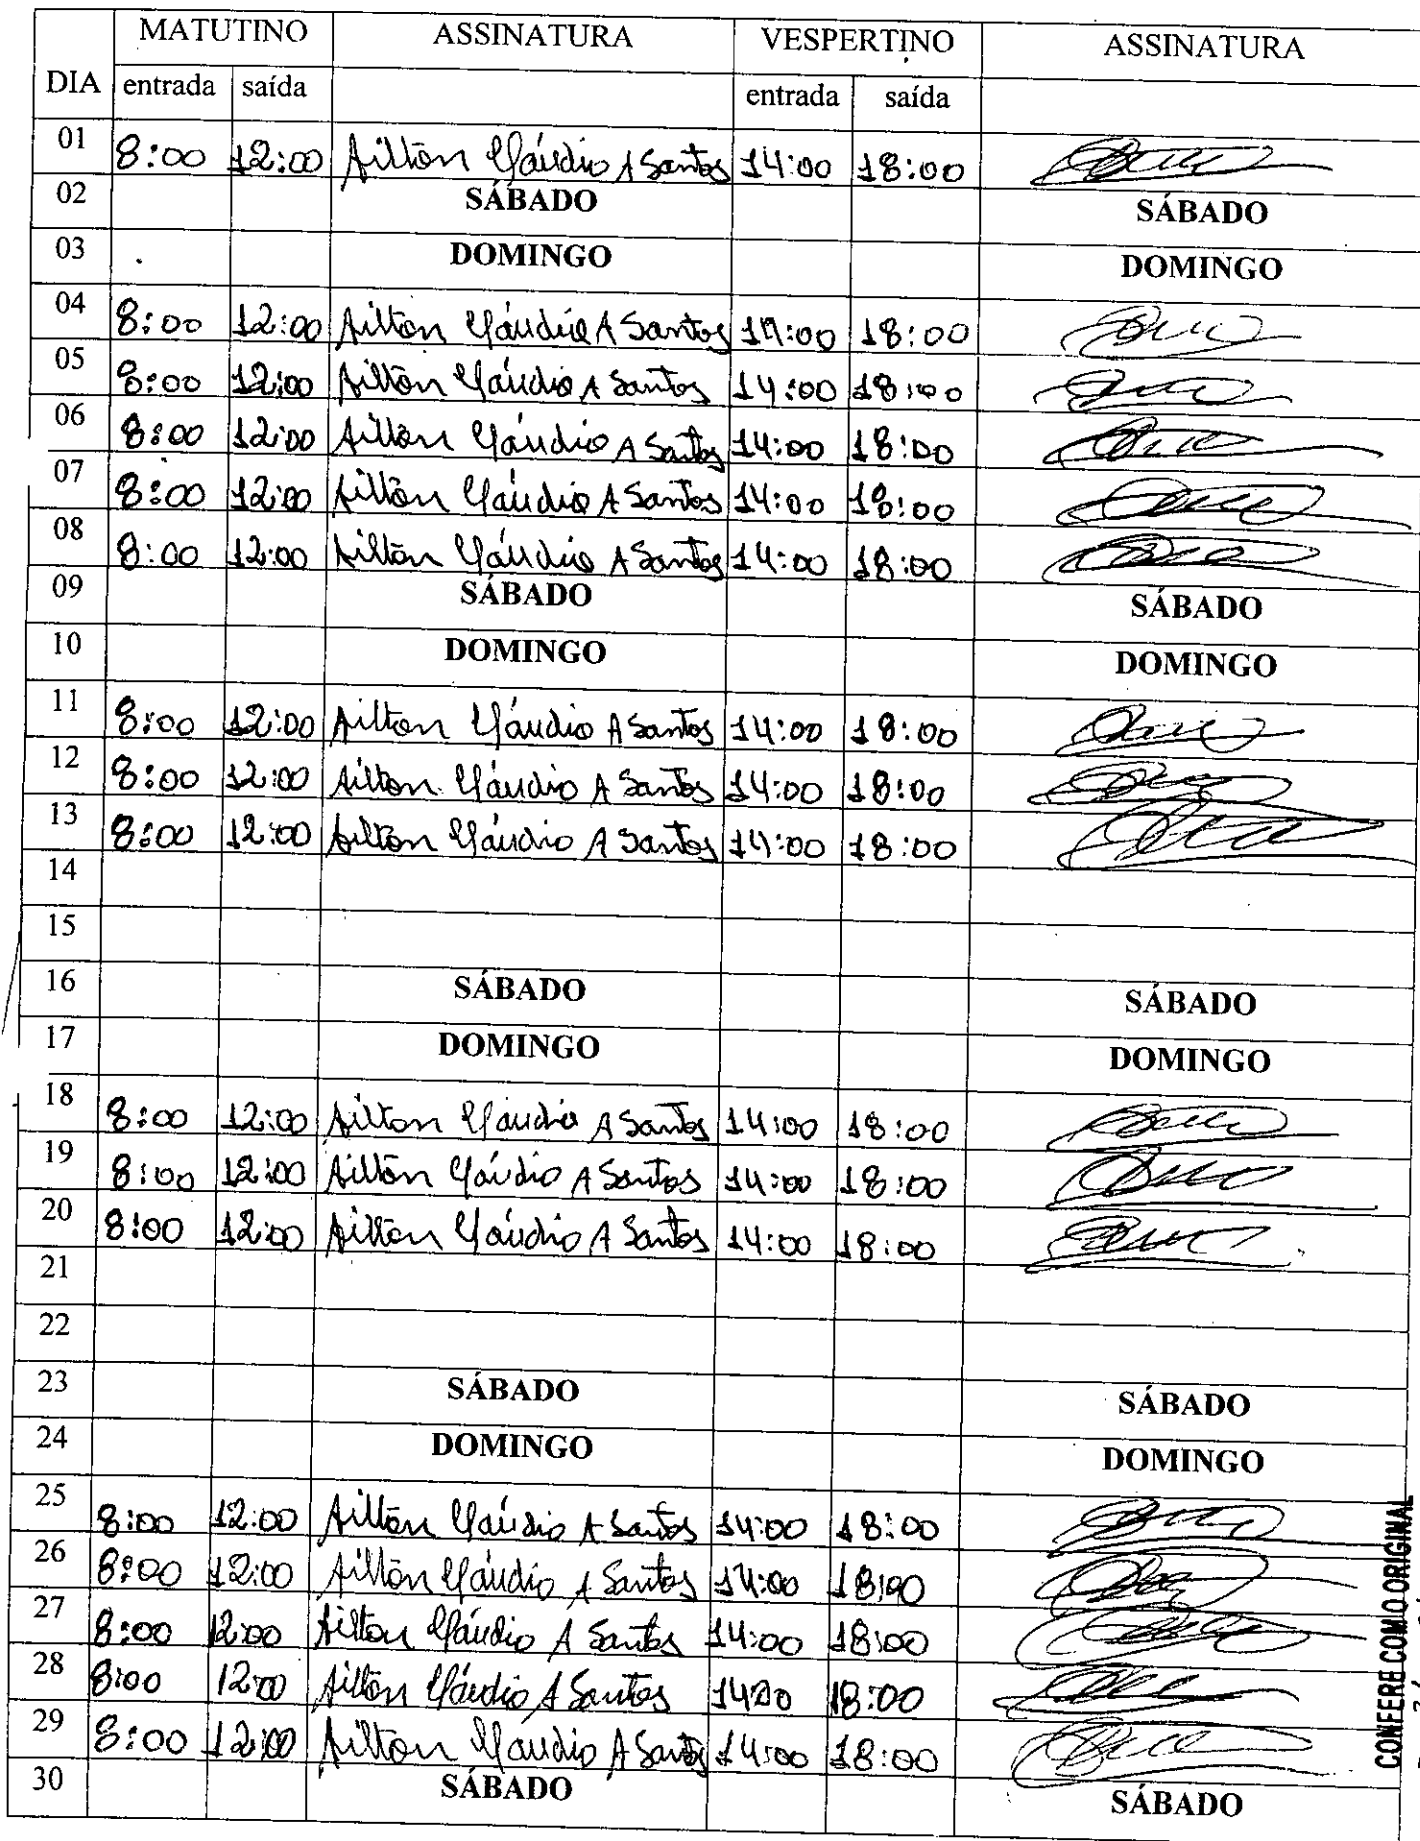 MATUTINO ASSINATURA VESPERTINO ASSINATURA
DIA entrada saída entrada saída
01 8:00 12:00 Ailton Cláudio A Santos 14:00 18:00
02 SÁBADO SÁBADO
03 DOMINGO DOMINGO
04 8:00 12:00 Ailton Cláudio A Santos 14:00 18:00
05 8:00 12:00 Ailton Cláudio A Santos 14:00 18:00
06 8:00 12:00 Ailton Cláudio A Santos 14:00 18:00
07 8:00 12:00 Ailton Cláudio A Santos 14:00 18:00
08 8:00 12:00 Ailton Cláudio A Santos 14:00 18:00
09 SÁBADO SÁBADO
10 DOMINGO DOMINGO
11 8:00 12:00 Ailton Cláudio A Santos 14:00 18:00
12 8:00 12:00 Ailton Cláudio A Santos 14:00 18:00
13 8:00 12:00 Ailton Cláudio A Santos 14:00 18:00
14
15
16 SÁBADO SÁBADO
17 DOMINGO DOMINGO
18 8:00 12:00 Ailton Cláudio A Santos 14:00 18:00
19 8:00 12:00 Ailton Cláudio A Santos 14:00 18:00
20 8:00 12:00 Ailton Cláudio A Santos 14:00 18:00
21
22
23 SÁBADO SÁBADO
24 DOMINGO DOMINGO
25 8:00 12:00 Ailton Cláudio A Santos 14:00 18:00
26 8:00 12:00 Ailton Cláudio A Santos 14:00 18:00
27 8:00 12:00 Ailton Cláudio A Santos 14:00 18:00
28 8:00 12:00 Ailton Cláudio A Santos 14:00 18:00
29 8:00 12:00 Ailton Cláudio A Santos 14:00 18:00
30 SÁBADO SÁBADO
CONFERE COM O ORIGINAL